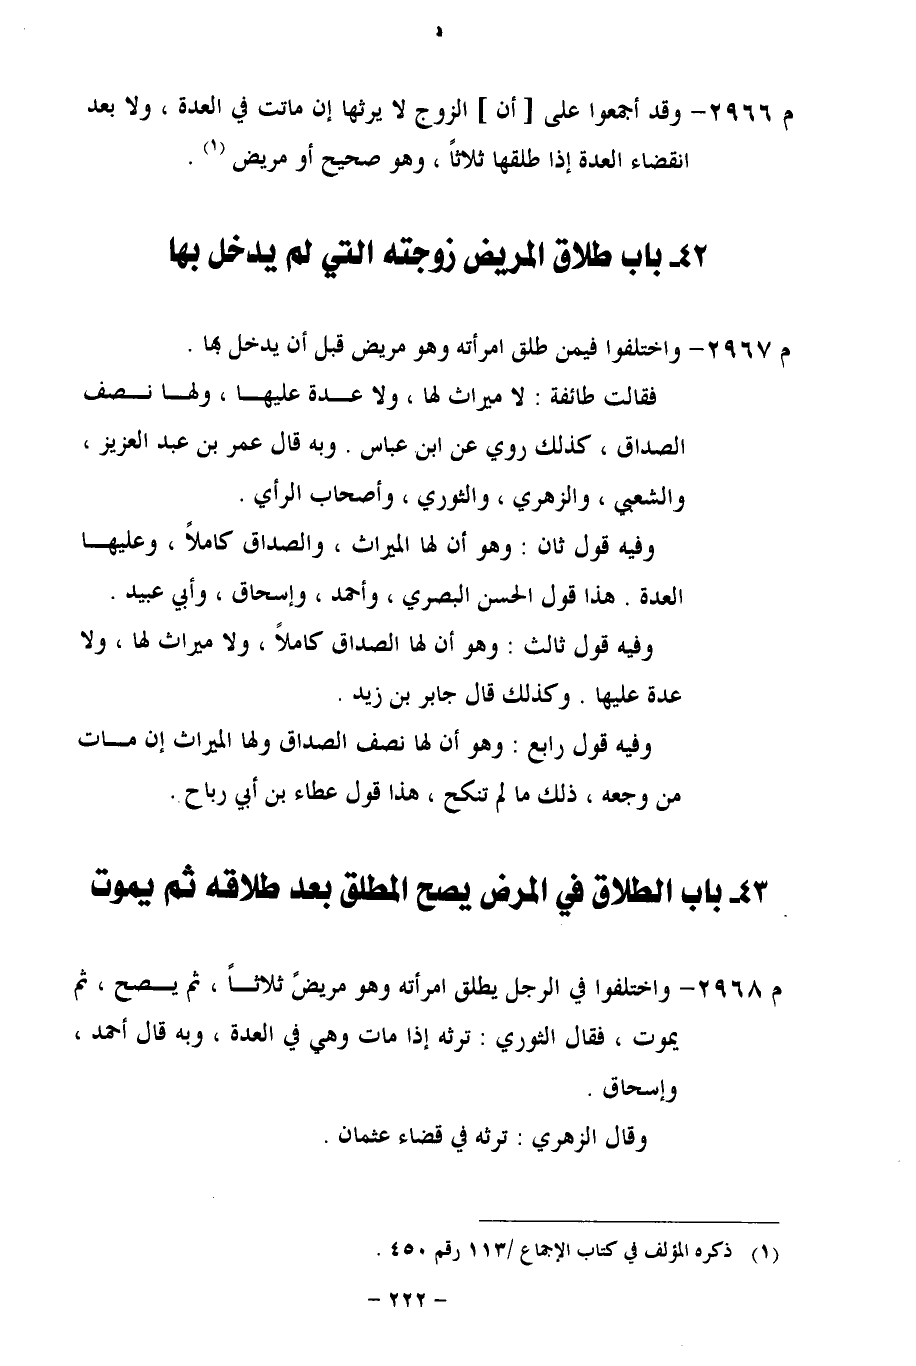 م ٢٩٦٦- وقد أجمعوا على [ أن ] الزوج لا يرثها إن ماتت في العدة ، ولا بعد
انقضاء العدة إذا طلقها ثلاثاً ، وهو صحيح أو مريض (١) .
٤٢- باب طلاق المريض زوجته التي لم يدخل بها
م ٢٩٦٧- واختلفوا فيمن طلق امرأته وهو مريض قبل أن يدخل بها .
فقالت طائفة : لا ميراث لها ، ولا عـــدة عليهـــا ، ولهـا نـــصف
الصداق ، كذلك روي عن ابن عباس . وبه قال عمر بن عبد العزيز ،
والشعبي ، والزهري ، والثوري ، وأصحاب الرأي .
وفيه قول ثان : وهو أن لها الميراث ، والصداق كاملاً ، وعليهـــا
العدة . هذا قول الحسن البصري ، وأحمد ، وإسحاق ، وأبي عبيد .
وفيه قول ثالث : وهو أن لها الصداق كاملاً ، ولا ميراث لها ، ولا
عدة عليها . وكذلك قال جابر بن زيد .
وفيه قول رابع : وهو أن لها نصف الصداق ولها الميراث إن مـــات
من وجعه ، ذلك ما لم تنكح ، هذا قول عطاء بن أبي رباح .
٤٣- باب الطلاق في المرض يصح المطلق بعد طلاقه ثم يموت
م ٢٩٦٨- واختلفوا في الرجل يطلق امرأته وهو مريضً ثلاثـــاً ، ثم يـــصح ، ثم
يموت ، فقال الثوري : ترثه إذا مات وهي في العدة ، وبه قال أحمد ،
وإسحاق .
وقال الزهري : ترثه في قضاء عثمان .
(١) ذكره المؤلف في كتاب الإجماع /١١٣ رقم ٤٥٠ .
- ٢٢٢ -